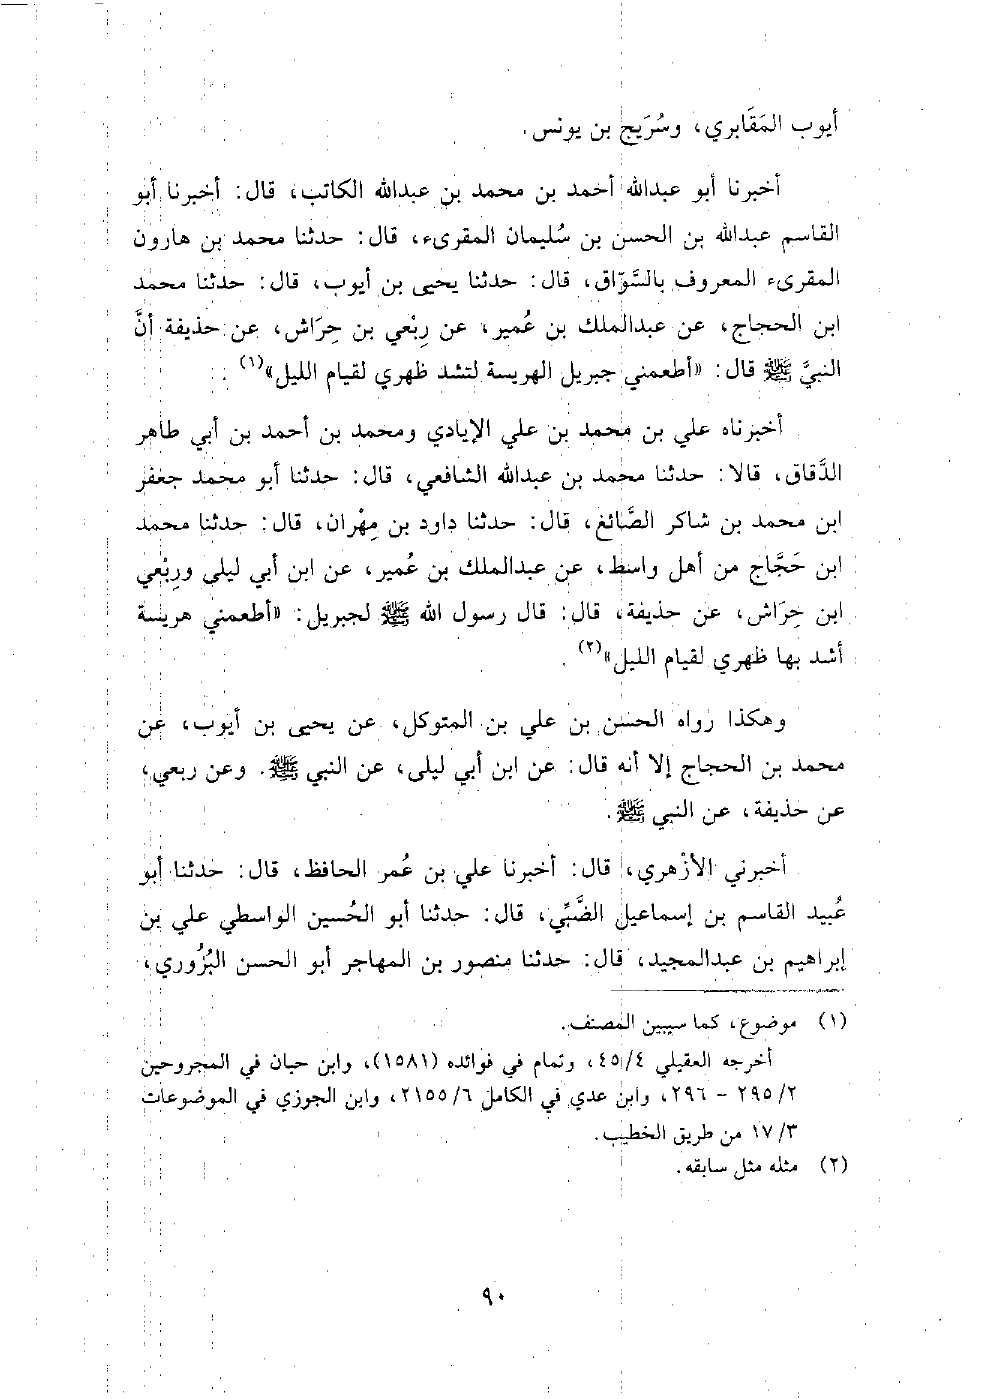 أيوب المَقَابري، وسُرَيج بن يونس.
أخبرنا أبو عبدالله أحمد بن محمد بن عبدالله الكاتب، قال: أخبرنا أبو
القاسم عبدالله بن الحسن بن سُليمان المقرىء، قال: حدثنا محمد بن هارون
المقرىء المعروف بالسَّوّاق، قال: حدثنا يحيى بن أيوب، قال: حدثنا محمد
ابن الحجاج، عن عبدالملك بن عُمير، عن رِبْعي بن حِرَاش، عن حذيفة أنَّ
النبيَّ ﷺ قال: «أطعمني جبريل الهريسة لتشد ظهري لقيام الليل»(١).
أخبرناه علي بن محمد بن علي الإيادي ومحمد بن أحمد بن أبي طاهر
الدَّقاق، قالا: حدثنا محمد بن عبدالله الشافعي، قال: حدثنا أبو محمد جعفر
ابن محمد بن شاكر الصَّائغ، قال: حدثنا داود بن مِهْران، قال: حدثنا محمد
ابن حَجَّاج من أهل واسط، عن عبدالملك بن عُمير، عن ابن أبي ليلى ورِبْعي
ابن حِرَاش، عن حذيفة، قال: قال رسول الله ﷺ لجبريل: «أطعمني هريسة
أشد بها ظهري لقيام الليل»(٢).
وهكذا رواه الحسن بن علي بن المتوكل، عن يحيى بن أيوب، عن
محمد بن الحجاج إلا أنه قال: عن ابن أبي ليلى، عن النبي ﷺ. وعن ربعي،
عن حذيفة، عن النبي ﷺ.
أخبرني الأزْهري، قال: أخبرنا علي بن عُمر الحافظ، قال: حدثنا أبو
عُبيد القاسم بن إسماعيل الضَّبِّي، قال: حدثنا أبو الحُسين الواسطي علي بن
إبراهيم بن عبدالمجيد، قال: حدثنا منصور بن المهاجر أبو الحسن البُزُوري،
(١) موضوع، كما سيبين المصنف.
أخرجه العقيلي ٤/ ٤٥، وتمام في فوائده (١٥٨١)، وابن حبان في المجروحين
٢/ ٢٩٥ - ٢٩٦، وابن عدي في الكامل ٦/ ٢١٥٥، وابن الجوزي في الموضوعات
٣/ ١٧ من طريق الخطيب.
(٢) مثله مثل سابقه.
٩٠